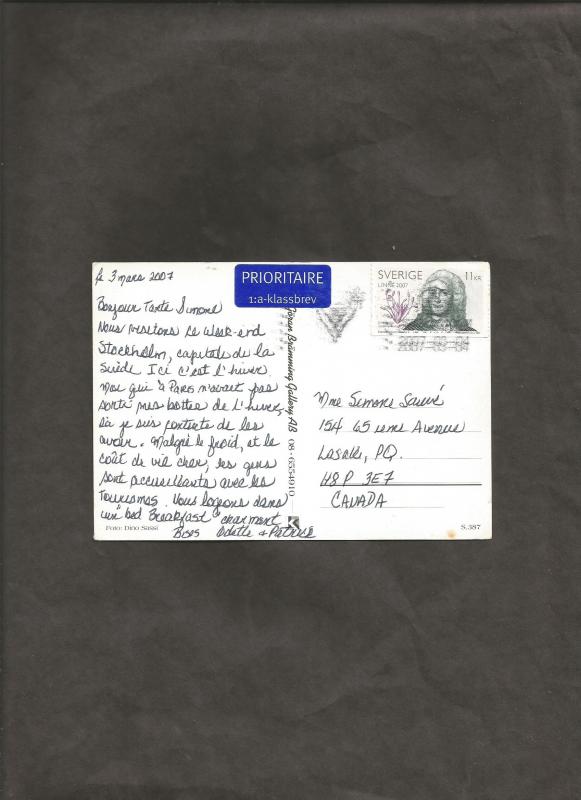 le 3 mars 2007
Bonjour Tante Simone
Nous visitons ce week-end
Stockholm, capitale de la
Suède Ici c'est l'hiver
Moi qui à Paris n'avait pas
sorti mes bottes de l'hiver,
là je suis contente de les
avoir. Malgré le froid, et le
coût de vie cher, les gens
sont accueillants avec les
Tourismes. Nous logeons dans
un "bed Breakfast" charmant
Bises Odette & Patrick
Foto: Dino Sassi
PRIORITAIRE
1:a-klassbrev
Göran Brämming Gallery AB 08-6554910
K
SVERIGE 11 KR
LINNÉ 2007
2007-03-04
Mme Simone Sauvé
154 65 ième Avenue
Lasalle, PQ.
H8P 3E7
CANADA
S.387